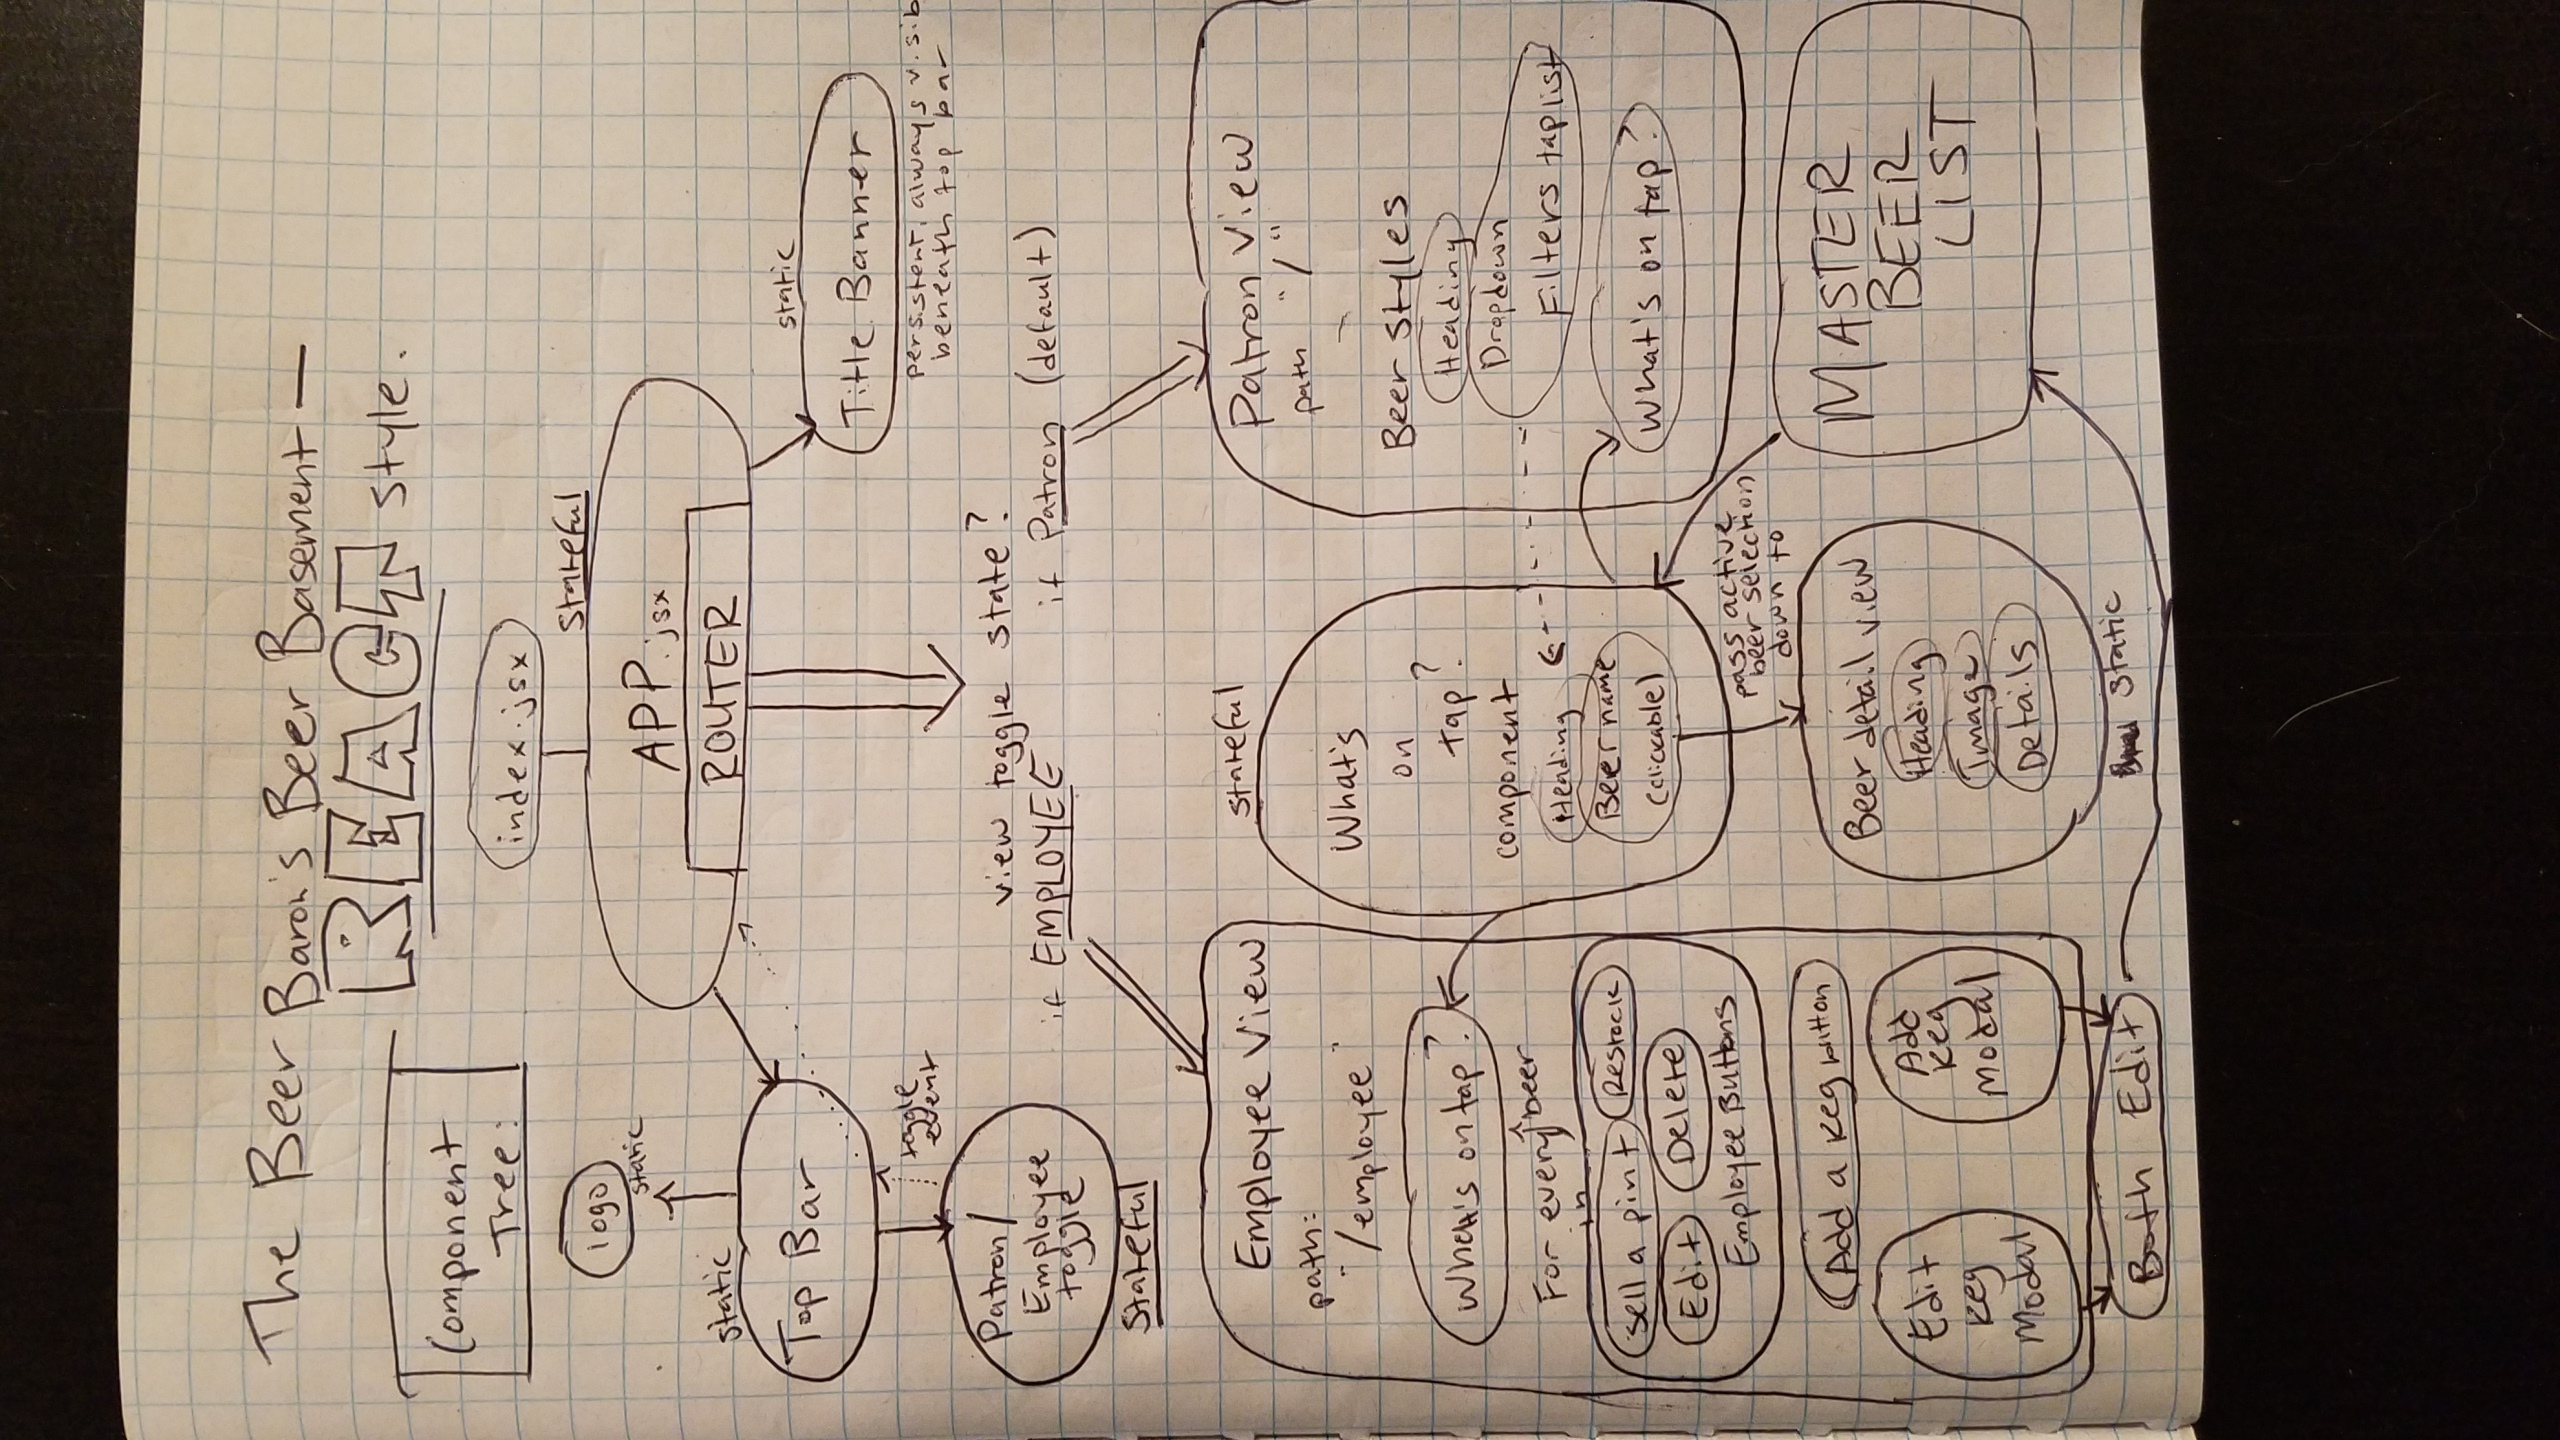 The Beer Baron's Beer Basement —
REACT style.
Component
Tree:
index.jsx
Stateful
logo
static
APP.jsx
ROUTER
static
Top Bar
static
Title Banner
persistent, always visib
beneath top bar
toggle
event
Patron/
Employee
toggle
Stateful
view toggle state?
if EMPLOYEE
if Patron (default)
Employee View
path:
"/employee"
What's on tap?
For every beer
in
Sell a pint
Restock
Edit
Delete
Employee Buttons
Add a keg button
Edit
keg
Modal
Add
keg
modal
Both Edit
stateful
What's
on
tap?
component
Heading
Beer name
(clickable)
pass active
beer selection
down to
Beer detail view
Heading
Image
Details
static
Patron View
path "/"
Beer Styles
Heading
Dropdown
Filters taplist
What's on tap?
MASTER
BEER
LIST